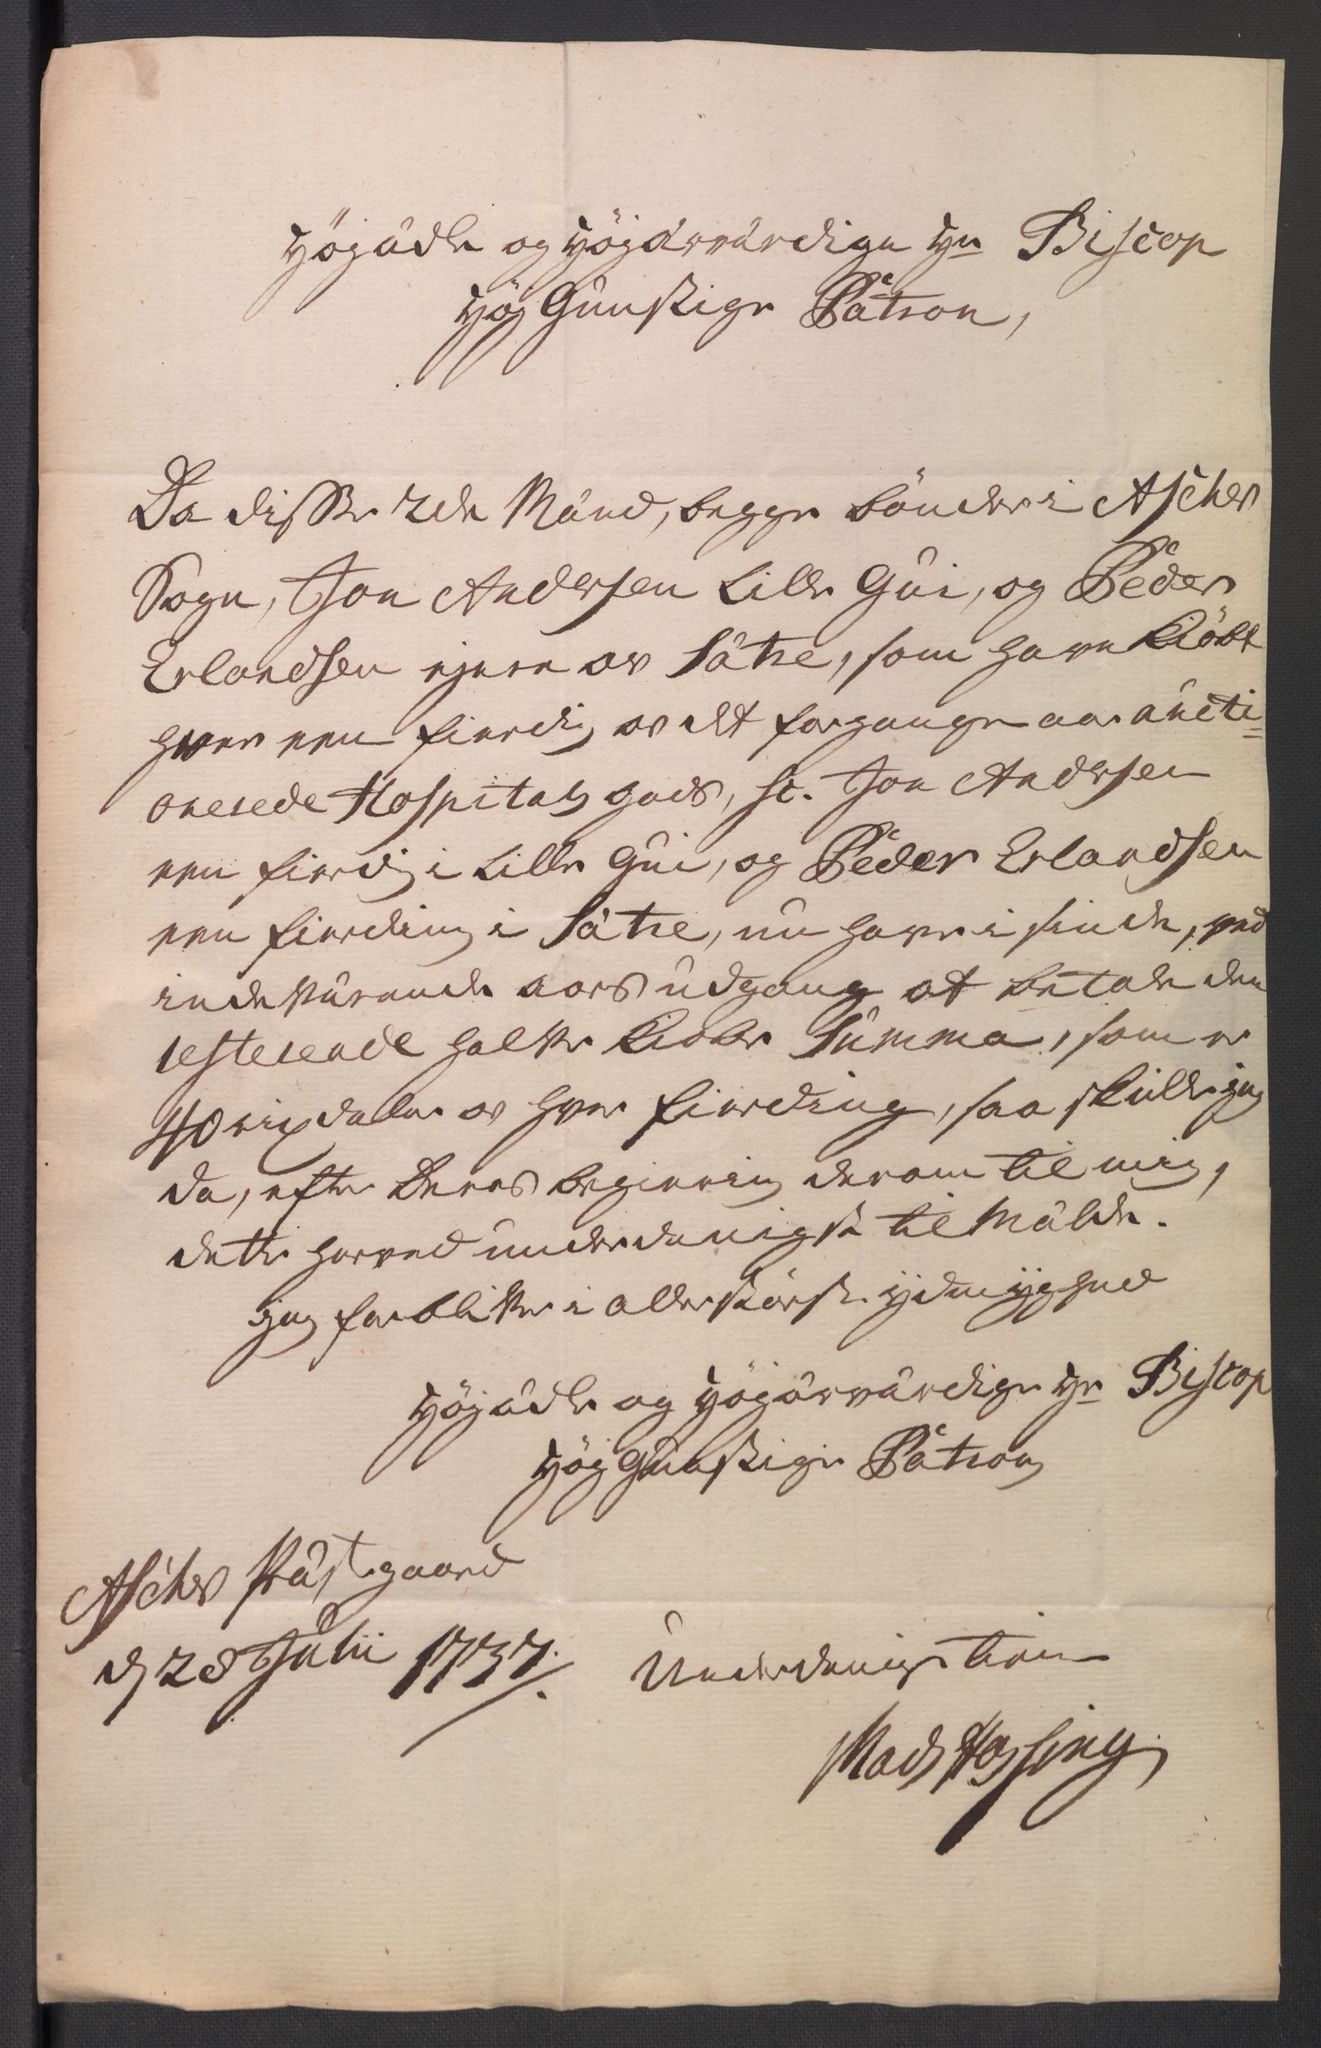 Højædle og Højærværdige Hr Biscop
Høj Gunstige Patron,
Da disse 2de Mænd, begge bönder i Ascher
Sogn, Jon Andersen Lille Gui, og Peder
Erlandsen ejere av Sätre, som have kiöbt
hver een fierding av det forgangne aar aucti=
onerede Hospitals gods, sc. Jon Andersen
een fierding i Lille Gui, og Peder Erlandsen
een fierding i Sätre, nu have i sinde, ved
indeværende aars udgang at betale den
resterende halve kiøbe Summa, som er
40 rixdaler av hver fierding, saa skulle jeg
da, efter Deres begiering derom til mig,
dette herved underdanigst til Mælde.
jeg forbliver i allerstörste ydmyghed
Højædle og Højærværdige Hr Biscop
Høj Gunstige Patrons
Ascher Præstgaard
d 28 Julii 1737.
Underdanigs tiener
Mads Hassing